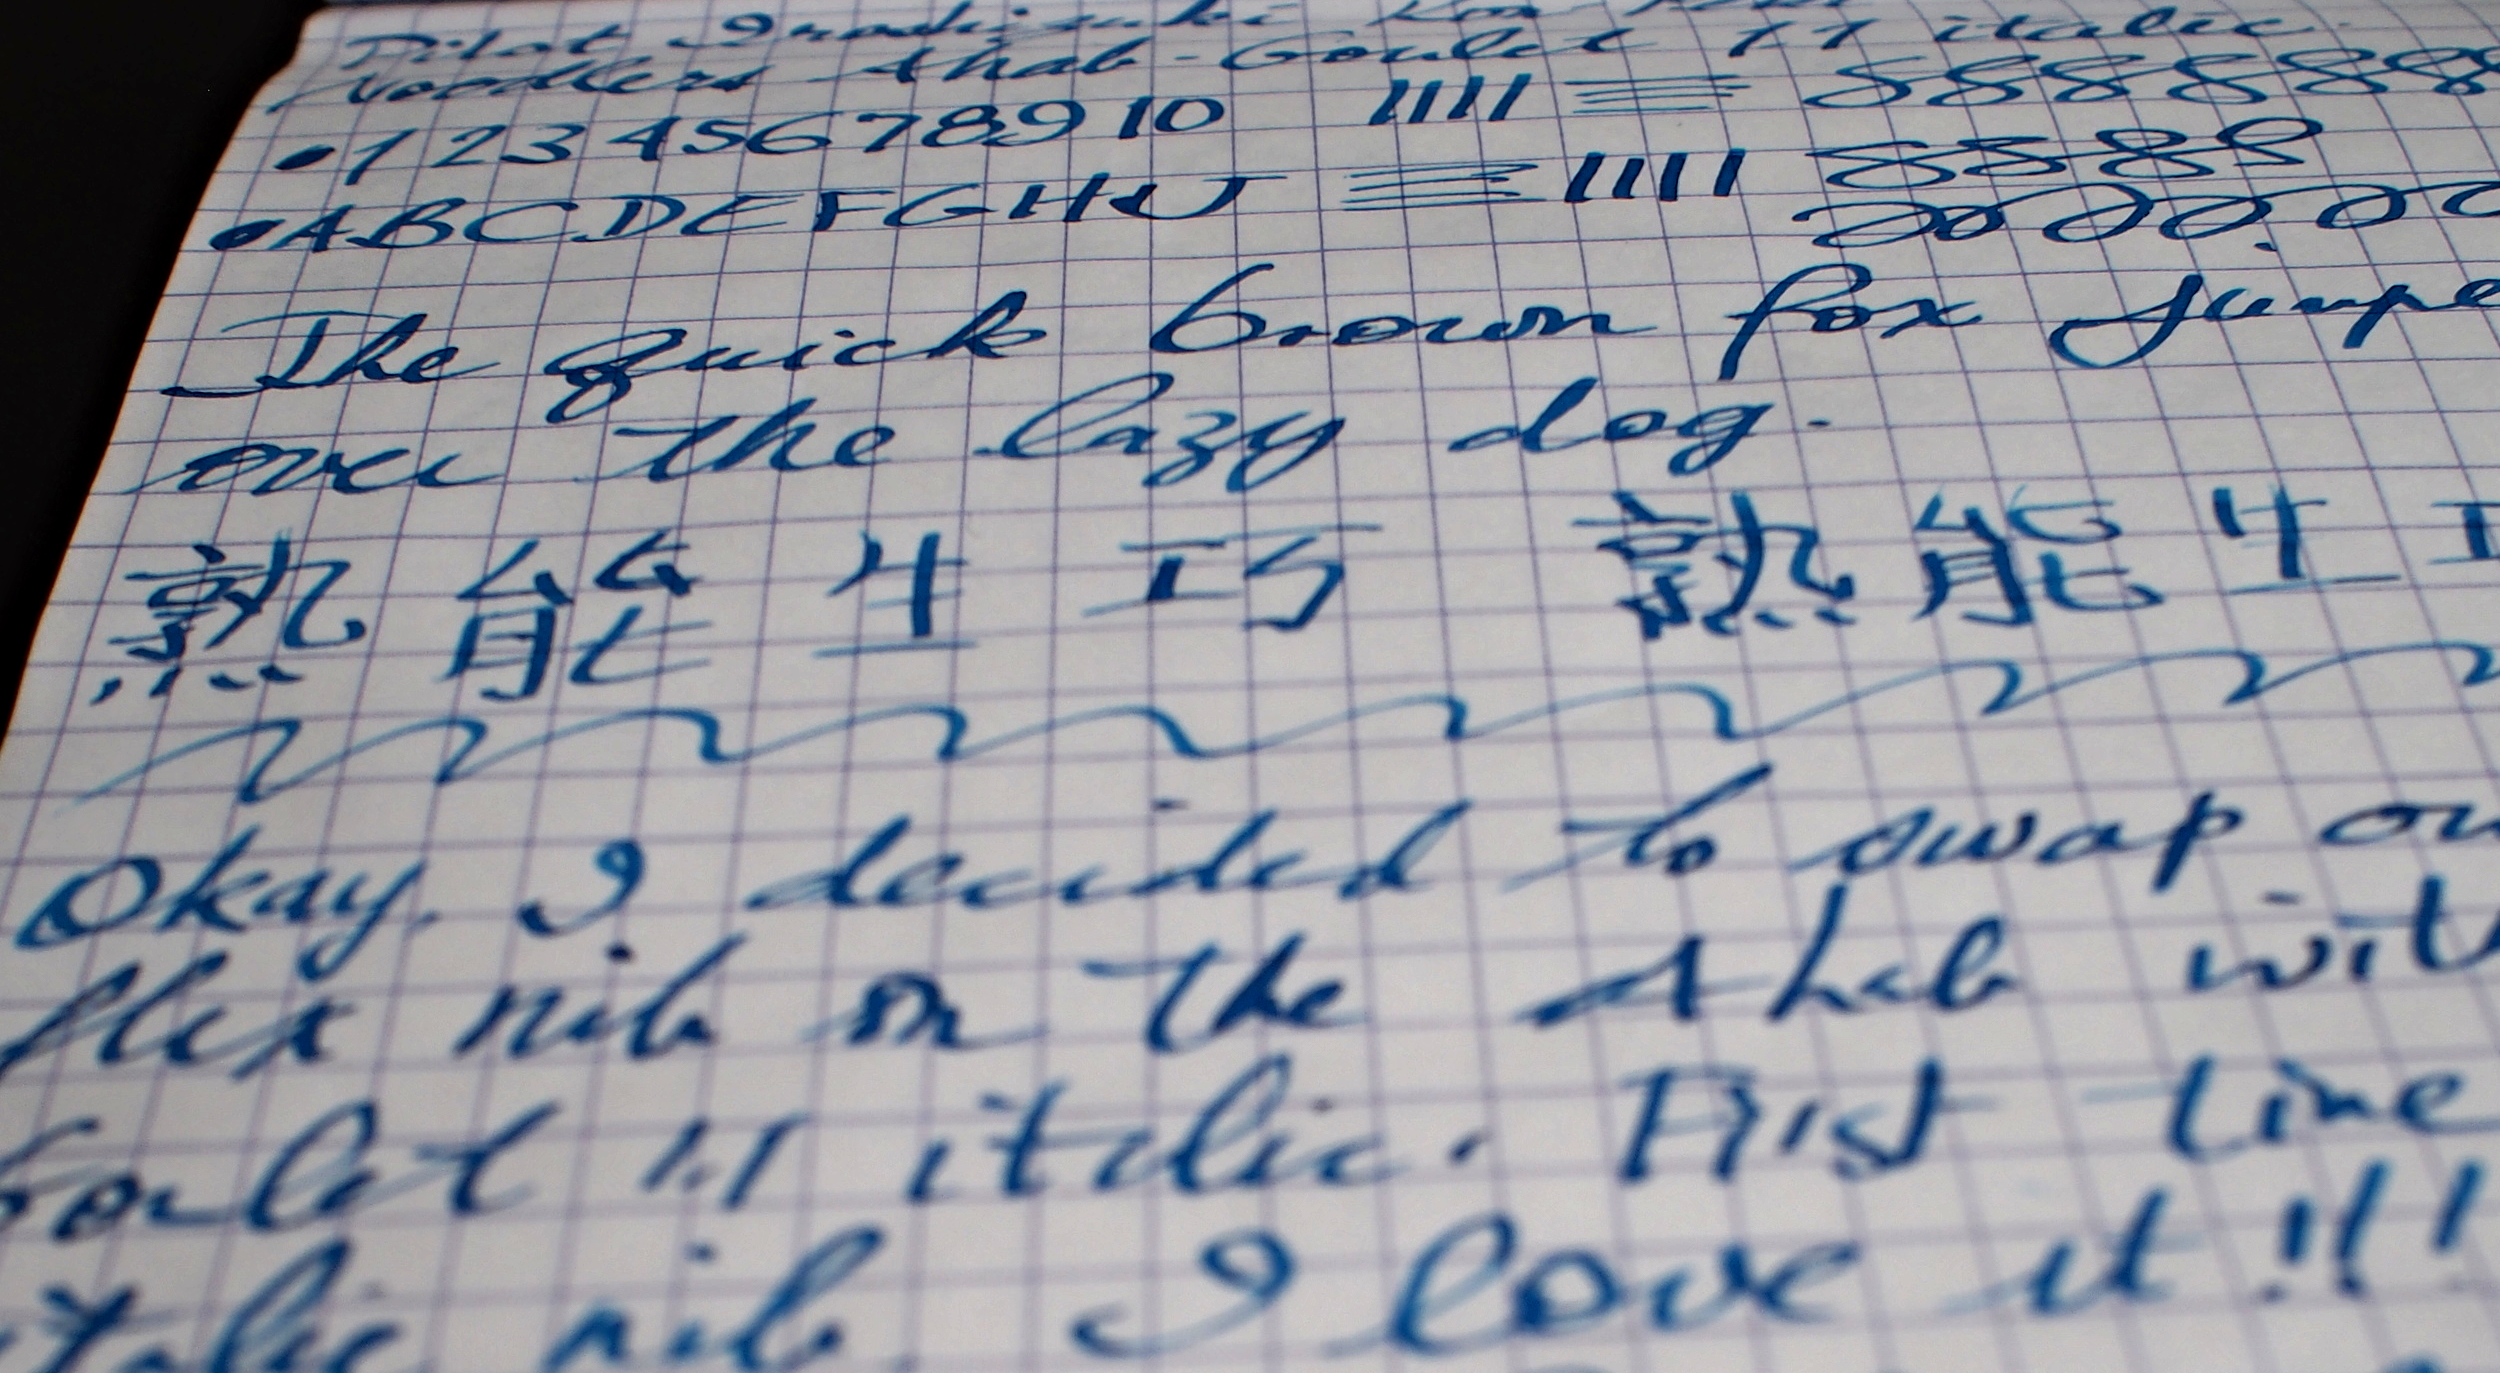 Pilot Iroshizuku Kon
Noodlers Ahab - Goulet 1.1 italic.
1 2 3 4 5 6 7 8 9 10 IIII 8 8 8 8 8 8 8
A B C D E F G H I J IIII 8 8 8 8
The quick brown fox jumpe
over the lazy dog.
熟 能 生 巧 熟 能 生
Okay. I decided to swap ou
flex nib on the Ahab wit
Goulet 1.1 italic. First time
italic nib. I love it!!!